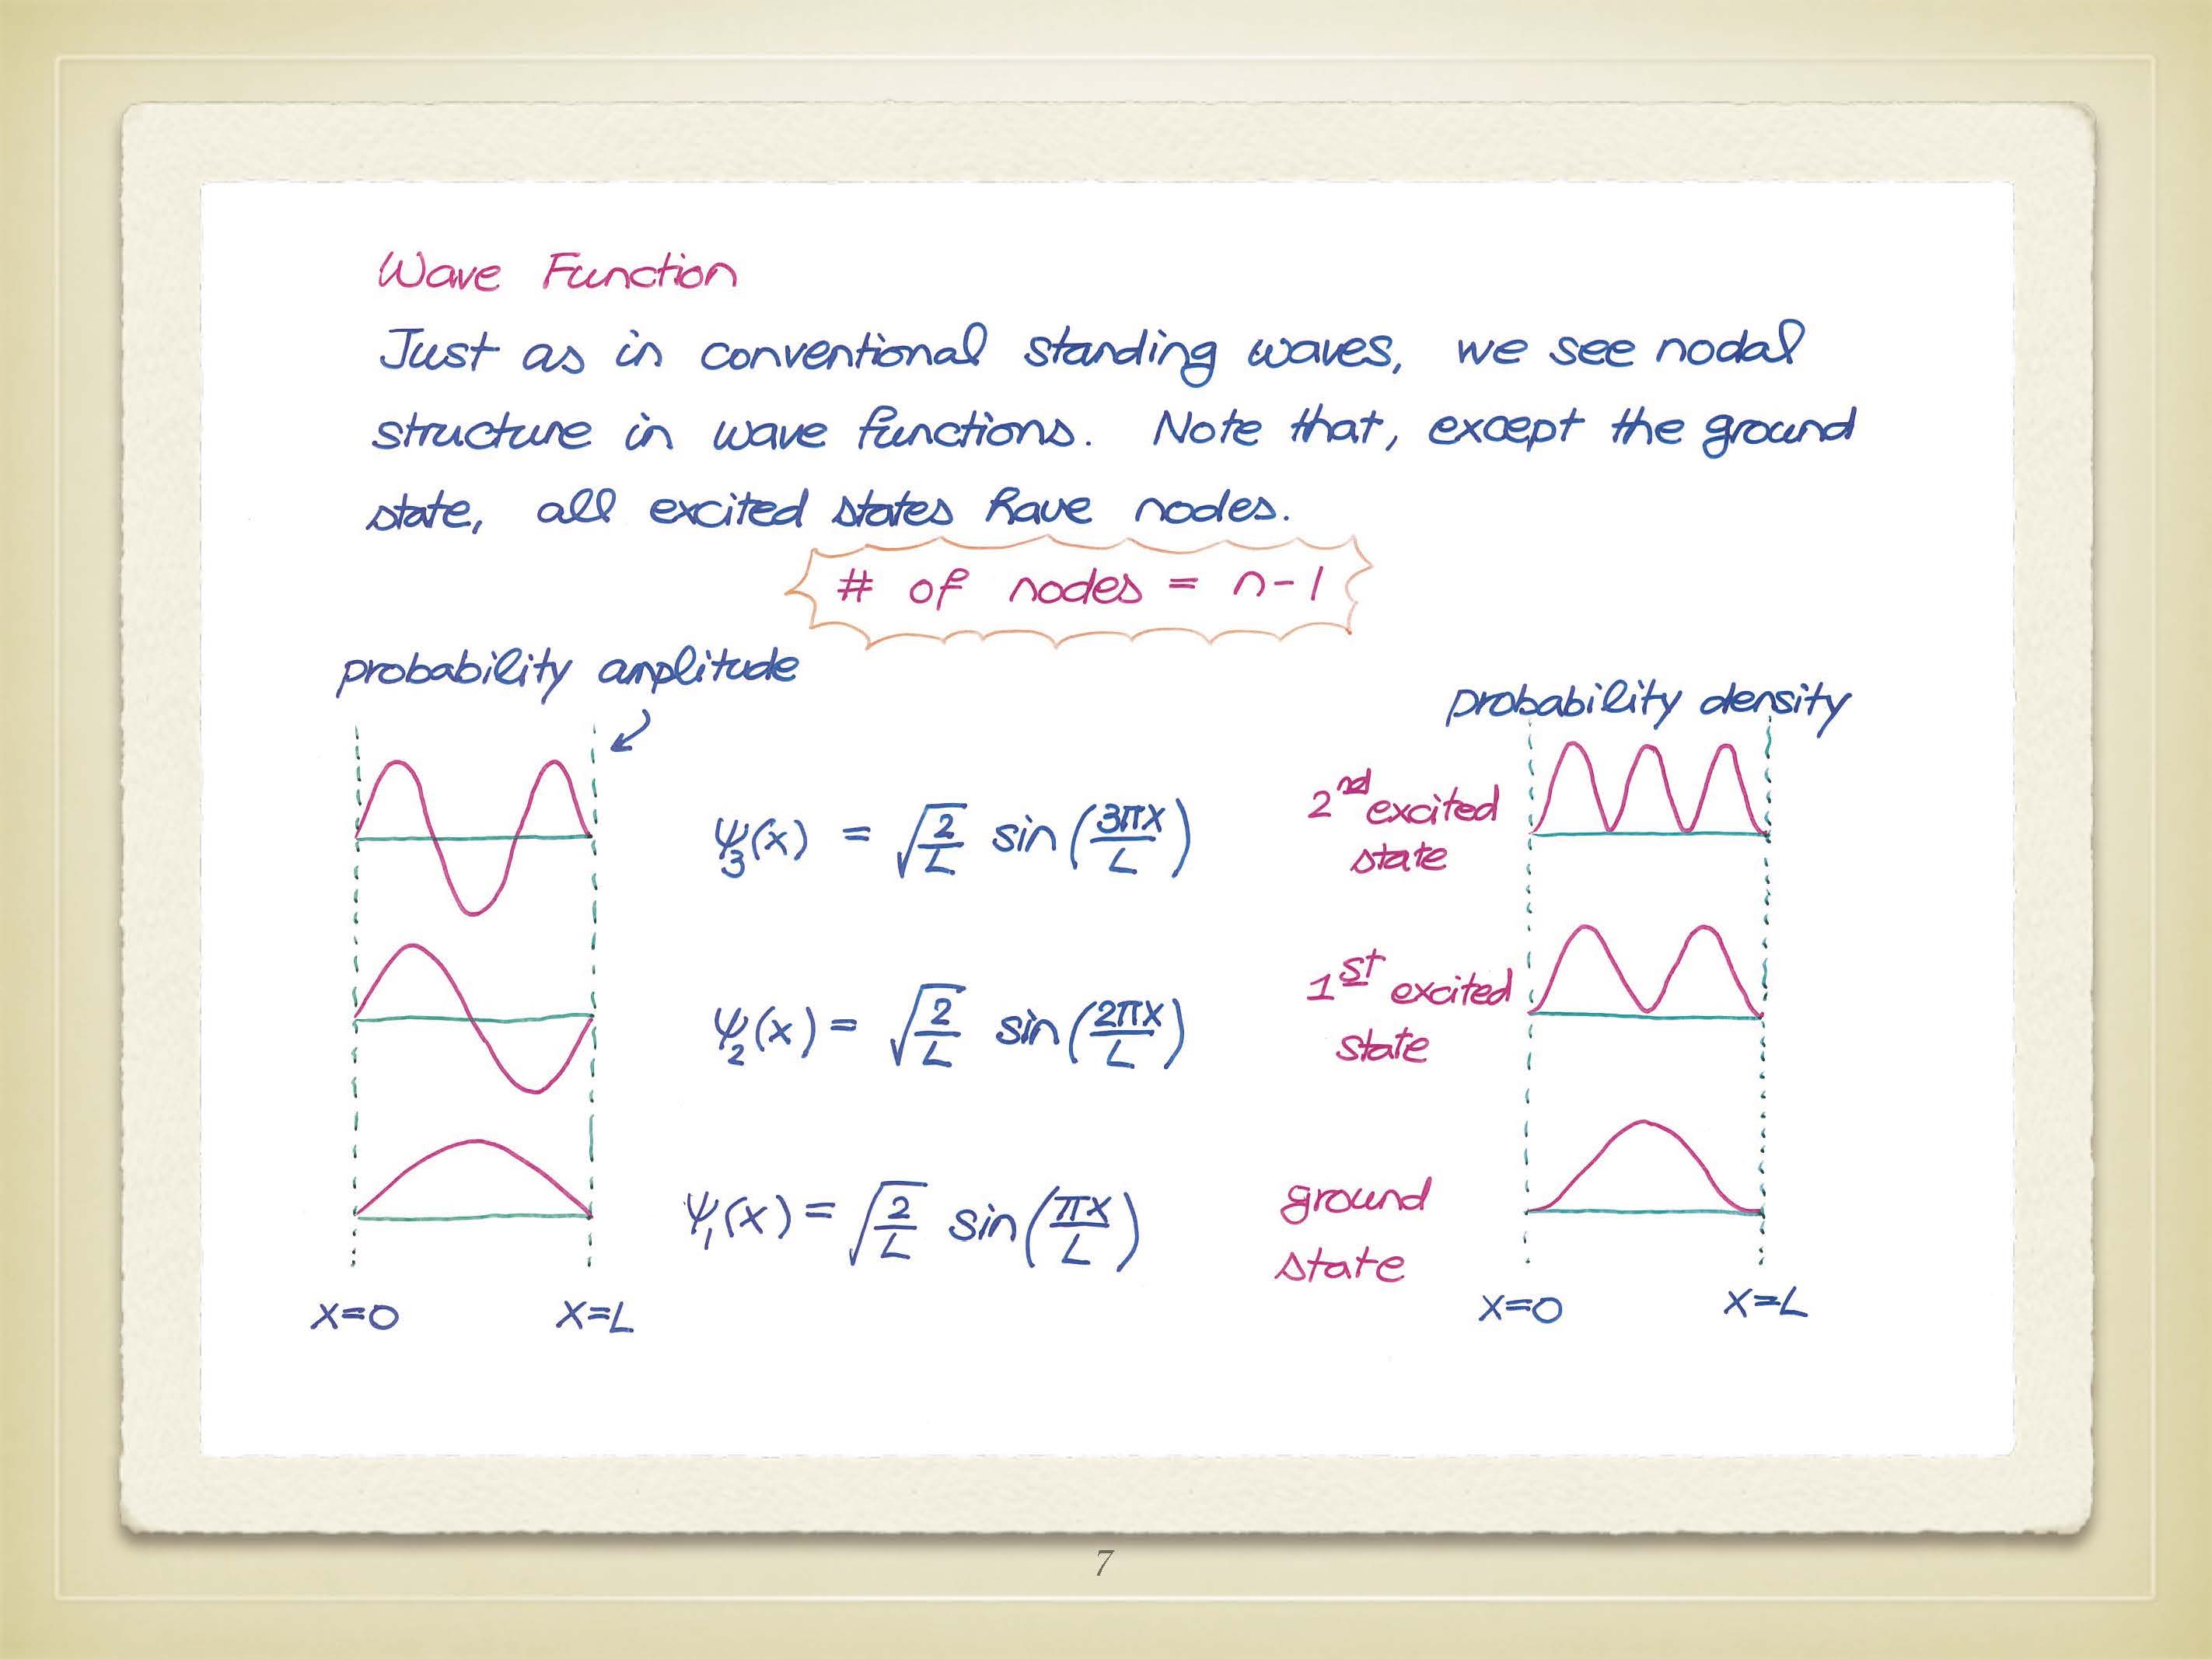 Wave Function
Just as in conventional standing waves, we see nodal
structure in wave functions. Note that, except the ground
state, all excited states have nodes.
# of nodes = n-1
probability amplitude
probability density
ψ₃(x) = √(2/L) sin(3πx/L)
2nd excited
state
ψ₂(x) = √(2/L) sin(2πx/L)
1st excited
state
ψ₁(x) = √(2/L) sin(πx/L)
ground
state
x=0
x=L
x=0
x=L
7